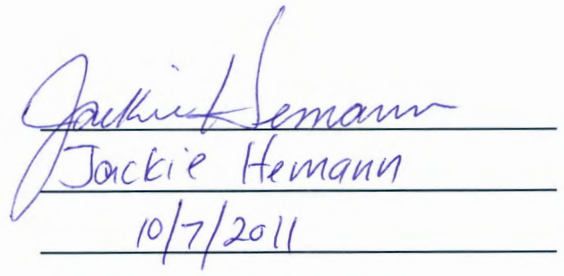 Jackie Hemann
Jackie Hemann
10/7/2011